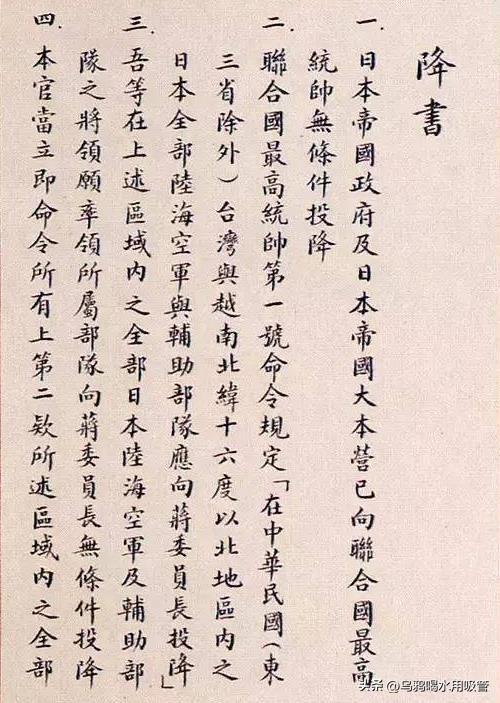 降書
一. 日本帝國政府及日本帝國大本營已向聯合國最高
統帥無條件投降
二. 聯合國最高統帥第一號命令規定「在中華民國(東
三省除外)台灣與越南北緯十六度以北地區內之
日本全部陸海空軍與輔助部隊應向蔣委員長投降」
三. 吾等在上述區域內之全部日本陸海空軍及輔助部
隊之將領願率領所屬部隊向蔣委員長無條件投降
四. 本官當立即命令所有上第二欵所述區域內之全部
头条 @乌鸦喝水用吸管